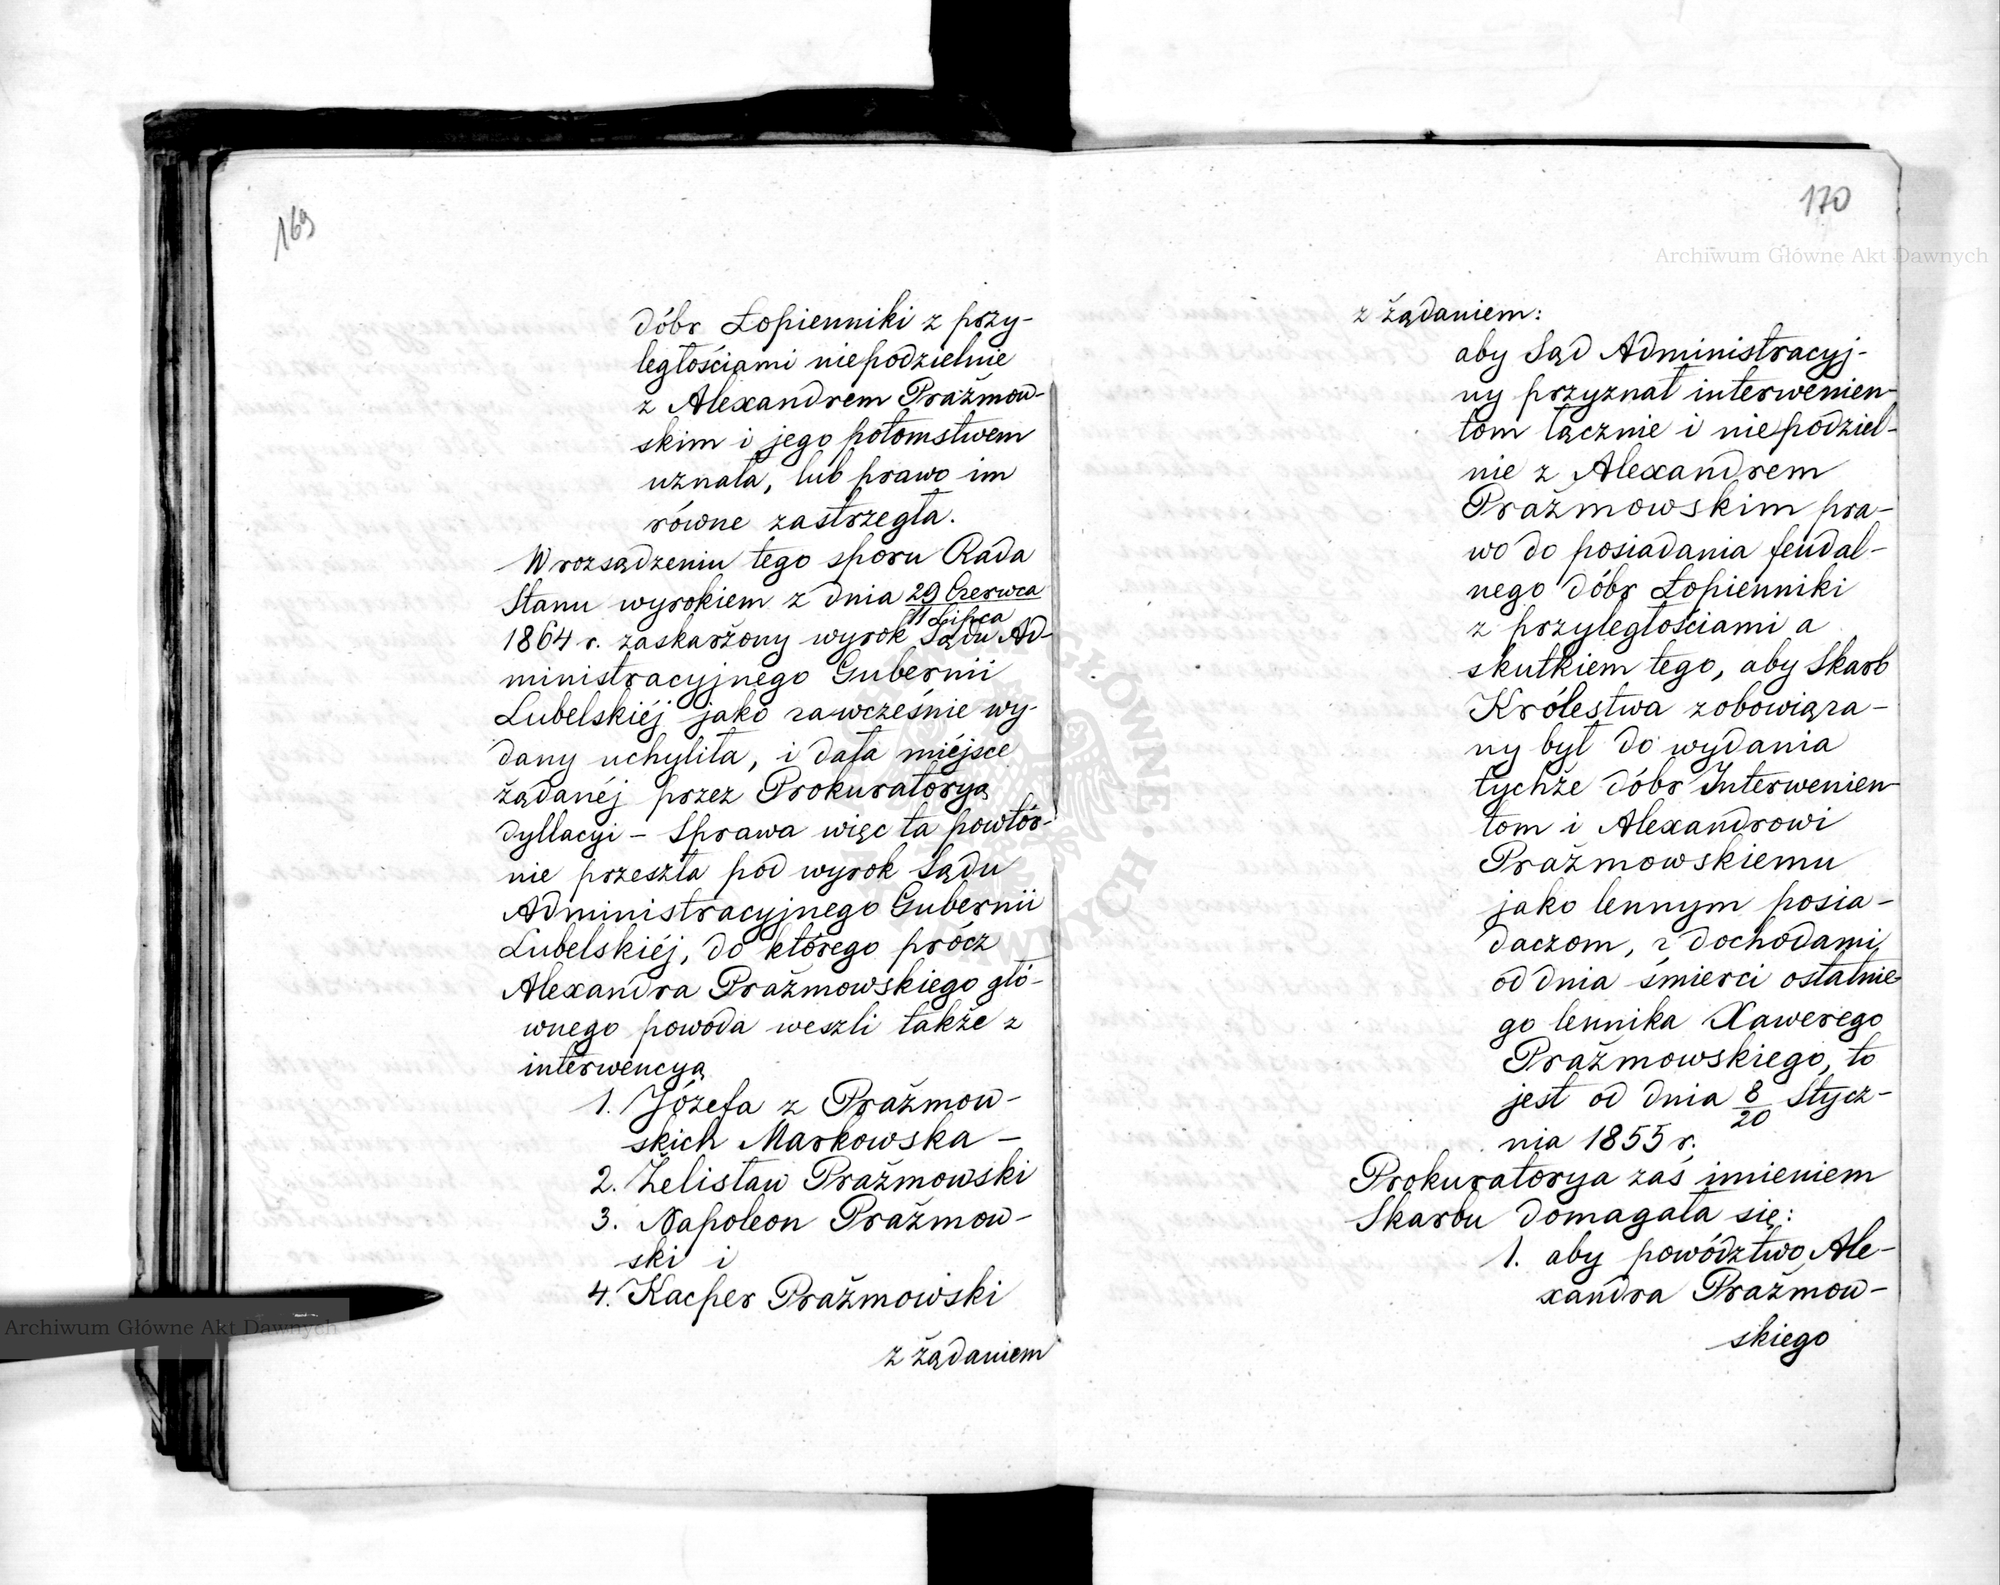 169
dóbr Łopienniki z przy-
ległościami niepodzielnie
z Alexandrem Prażmow-
skim i jego potomstwem
uznała, lub prawo im
równe zastrzegła.
W rozsądzeniu tego sporu Rada
Stanu wyrokiem z dnia 29 Czerwca
11 Lipca
1864 r. zaskarżony wyrok Sądu Ad-
ministracyjnego Gubernii
Lubelskiéj jako zawcześnie wy-
dany uchyliła, i dała miéjsce
żądanéj przez Prokuratoryą
dyllacyi – Sprawa więc ta powtór-
nie przeszła pod wyrok Sądu
Administracyjnego Gubernii
Lubelskiéj, do którego prócz
Alexandra Prażmowskiego głó-
wnego powoda weszli także z
interwencyą
1. Józefa z Prażmow-
skich Markowska –
2. Żelisław Prażmowski
3. Napoleon Prażmow-
ski i
4. Kacper Prażmowski
z żądaniem
170
z żądaniem:
aby Sąd Administracyj-
ny przyznał interwenien-
tom łącznie i niepodziel-
nie z Alexandrem
Prażmowskim pra-
wo do posiadania feudal-
nego dóbr Łopienniki
z przyległościami a
skutkiem tego, aby Skarb
Królestwa zobowiąza-
ny był do wydania
tychże dóbr Interwenien-
tom i Alexandrowi
Prażmowskiemu
jako lennym posia-
daczom, z dochodami,
od dnia śmierci ostatnie-
go lennika Xawerego
Prażmowskiego, to
jest od dnia 8/20 Stycz-
nia 1855 r.
Prokuratorya zaś imieniem
Skarbu domagała się:
1. aby powództwo Ale-
xandra Prażmow-
skiego
Archiwum Główne Akt Dawnych
Archiwum Główne Akt Dawnych